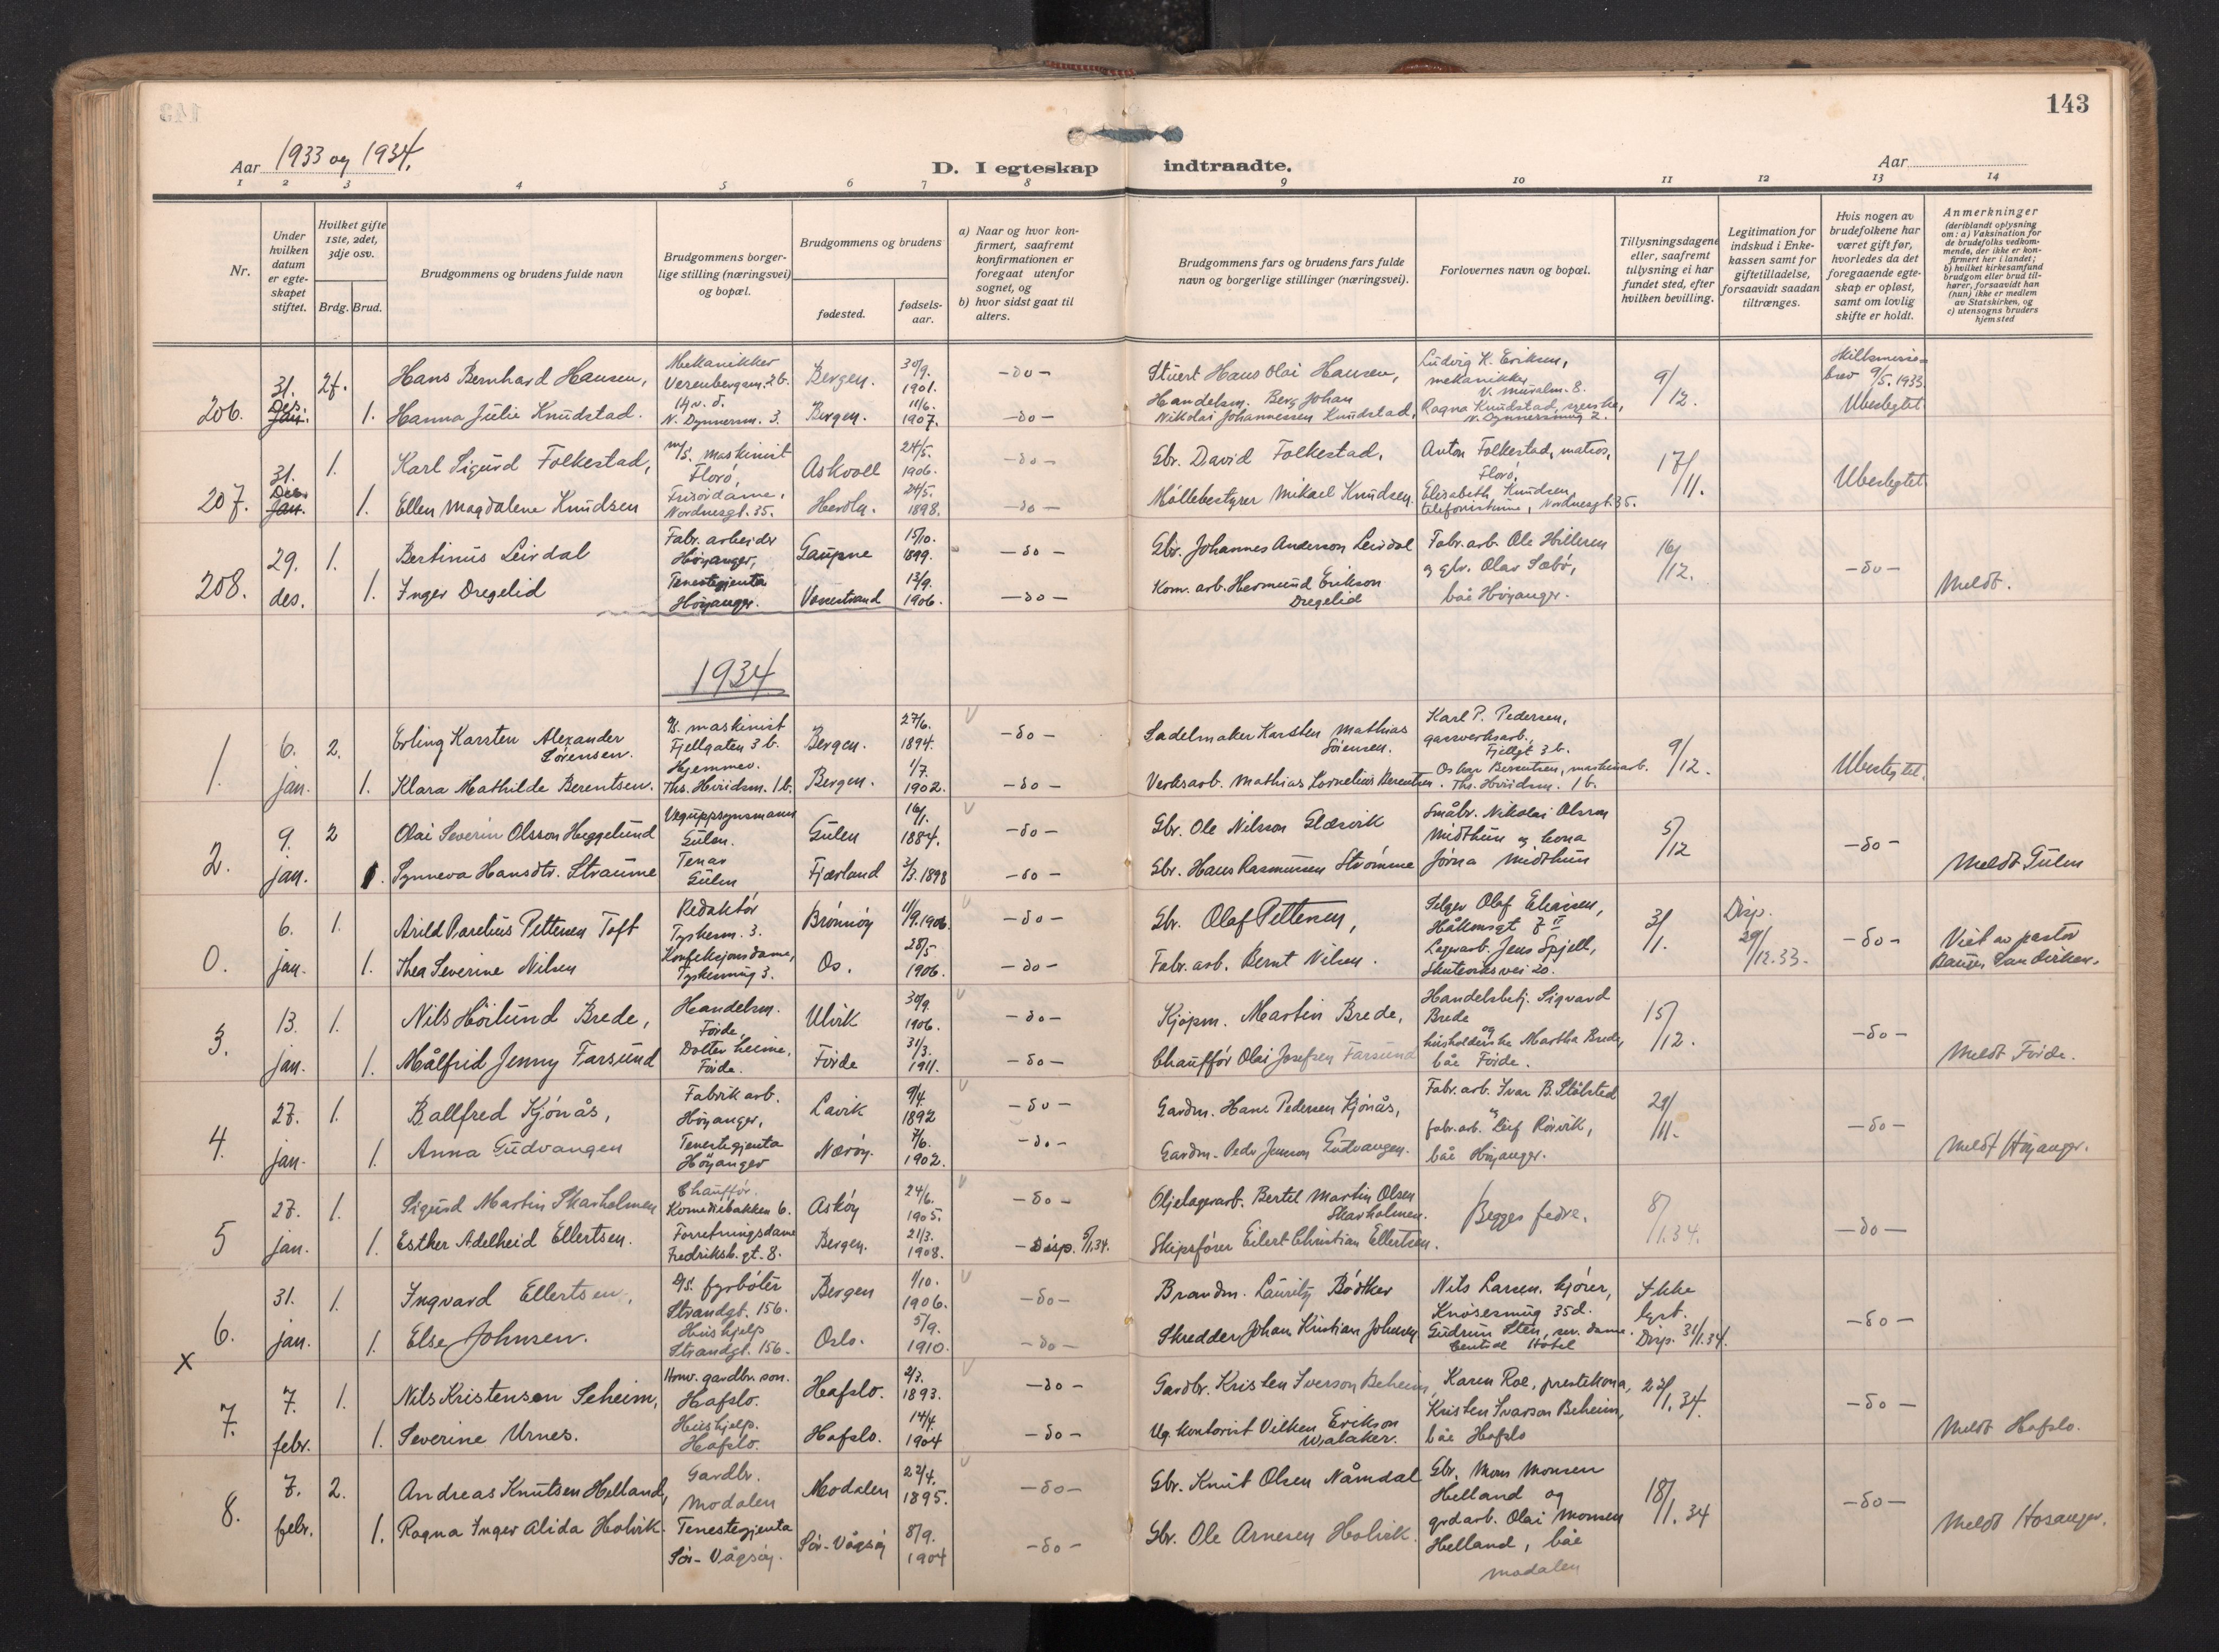 143
Aar 1933 og 1934.
D. I egteskap indtraadte.
Aar
1 2 3 4 5 6 7 8 9 10 11 12 13 14
Nr.
Under hvilken datum er egte-skapet stiftet.
Hvilket gifte 1ste, 2det, 3dje osv.
Brdg. Brud.
Brudgommens og brudens fulde navn
Brudgommens borger-lige stilling (næringsvei) og bopæl.
Brudgommens og brudens
fødested.
fødsels-aar.
a) Naar og hvor kon-firmert, saafremt konfirmationen er foregaat utenfor sognet, og
b) hvor sidst gaat til alters.
Brudgommens fars og brudens fars fulde navn og borgerlige stillinger (næringsvei).
Forlovernes navn og bopæl.
Tillysningsdagene eller, saafremt tillysning ei har fundet sted, efter hvilken bevilling.
Legitimation for indskud i Enke-kassen samt for giftetilladelse, forsaavidt saadan tiltrænges.
Hvis nogen av brudefolkene har været gift før, hvorledes da det foregaaende egte-skap er opløst, samt om lovlig skifte er holdt.
Anmerkninger (deriblandt oplysning om: a) Vaksination for de brudefolks vedkom-mende, der ikke er kon-firmert her i landet; b) hvilket kirkesamfund brudgom eller brud til-hører, forsaavidt han (hun) ikke er medlem av Statskirken, og c) utensogns bruders hjemsted
206. 31. Des. Jan. 2f. Hans Bernhard Hansen, Mekanikker Bergen. 30/9. 1901. -do- Stuert Hans Olai Hansen, Ludvig K. Eriksen, mekanikker, V. Muralm. 8. 9/12. brev 9/5. 1933
1. Hanna Julie Knudstad. N. Dynnersm. 3. Bergen. 11/6. 1907. -do- Handelsm. Berg Johan Nikolai Johannessen Knudstad, Ragna Knudstad, Ubeslegtet
207. 31. Des. Jan. 1. Karl Sigurd Folkestad, m/s. maskinist Florö, Askvoll 24/5. 1906. -do- Gbr. David Folkestad, Anton Folkestad, matros, Florö, 17/11. Ubeslegtet
1. Ellen Magdalene Knudsen Frisördame, Nordnesgt. 35. Herdla. 24/5. 1898. -do- Möllebestyrer Mikael Knudsen. Elisabeth Knudsen, telefonistinne, Nordnesgt. 35.
208. 29. des. 1. Bertinus Leirdal Fabr. arbeider Höyanger, Gaupne 15/10. 1899. -do- Gbr. Johannes Anderson Leirdal Fabr. arb. Ole Hilleren og gbr. Olav Sæbö, 16/12. -do-
1. Inger Dregelid Tenestegjenta Höyanger. 13/9. 1906. -do- Kom. arb. Hermund Erikson Dregelid båe Höyanger. Meldt.
1934
1. 6. jan. 2. Erling Karsten Alexander Sörensen. D/s. maskinist Fjellgaten 3 b. Bergen. 27/6. 1894. -do- Sadelmaker Karsten Mathias Sörensen. Karl P. Pedersen, gassverksarb., Fjellgt 3 b. 9/12. Ubeslegtet.
1. Klara Mathilde Berentsen. Hjemmev. 1 b. Bergen. 1/7. 1902. -do- Verksarb. Mathias Kornelius Berentsen. Oskar Berentsen, maskinarb. 1 b.
2. 9. jan. 2 Olai Severin Olsson Heggelund Veguppsynsmann Gulen. Gulen 16/1. 1884. -do- Gbr. Ole Nilsson Glærvik Småbr. Nikolai Olsson Midthun og kona 5/12 -do-
1. Synneva Hansdtr. Straume Tenar Gulen Fjærland 3/3. 1898 -do- Gbr. Hans Rasmussen Strömme Jörna Midthun Meldt Gulen
0. 6. jan. 1. Arild Parelius Pettersen Toft Redaktör Tyskesm. 3. Brönnöy 11/9. 1906. -do- Gbr. Olaf Pettersen, Selger Olaf Eliassen, Håkonsgt 7 II 3/1. Disp. 29/12.33. -do- Viet av pastor
1. Thea Severine Nilsen Konfeksjonsdame, Tyskesmug 3. Os. 28/5 1906. -do- Fabr. arb. Bernt Nilsen. Lagerarb. Jens Spjell, Skuteviksvei 20.
3. 13. jan. 1. Nils Höilund Brede, Handelsm. Förde, Ulvik 30/9. 1906. -do- Kjöpm. Martin Brede, Handelsbetj. Sigvard Brede og 15/12. -do-
1. Målfrid Jenny Farsund Dotter heime, Förde. Förde 31/3. 1911. -do- Chaufför Olai Josefsen Farsund husholderske Martha Brede, båe Förde. Meldt Förde.
4. 27. jan. 1. Ballfred Kjönås, Fabrik arb. Höyanger, Lavik 9/4. 1892 -do- Gardm. Hans Pedersen Kjönås, Fabr. arb. Ivar B. Stölsted og 29/11. -do-
1. Anna Gudvangen Tenestegjenta Höyanger Næröy. 7/6. 1902. -do- Gardm. Peder Jensson Gudvangen. fabr. arb. Leif Rörvik, båe Höyanger. Meldt Höyanger.
5 27. jan. 1. Sigurd Martin Skarholmen Chaufför. Komediebakken 6. Asköy 24/6. 1905. -do- Oljelagerarb. Bertel Martin Olsen Skarholmen. Begges fedre. 8/1.34. -do-
1. Esther Adelheid Ellertsen. Forretningsdame Fredriksb. gt. 8. Bergen. 21/3. 1908. - Disp. 5/1.34. Skipsförer Eilert Christian Ellertsen.
6. x 31. jan. 1. Ingvard Ellertsen, D/S. fyrböter Strandgt. 156. Bergen 1/10. 1906. -do- Brandm. Lauritz Bödtker Nils Larsen, kjörer, Knösesmug 35d. Ikke lyst. -do-
1. Else Johnsen. Hushjelp Strandgt. 156. Oslo. 5/9. 1910. -do- Skredder Johan Kristian Johnsen Gudrun Sten, ser. dame. Central Hotel Disp. 31/1.34.
7. 7. febr. 1. Nils Kristenson Seheim, Hafslo. Hafslo. 2/3. 1893. -do- Gardbr. Kristen Iverson Beheim, Karen Roe, prestekona, 23/1.34. -do-
1. Severine Urnes. Hushjelp. Hafslo. Hafslo. 14/4. 1904 -do- Ug. kontorist Vilken Erikson Walaker. Kristen Ivarson Beheim, båe Hafslo Meldt Hafslo.
8. 7. febr. 2. Andreas Knutsen Helland, Gardbr. Modalen Modalen 22/4. 1895. -do- Gbr. Knut Olsen Nåmdal Gbr. Mons Monsen Helland og 18/1.34 -do-
1. Ragna Inger Alida Holvik. Tenestegjenta Sör-Vågsöy. Sör-Vågsöy 8/9. 1904 -do- Gbr. Ole Arnesen Holvik. grdarb. Olai Monsen Helland, båe Modalen Meldt Hosanger.